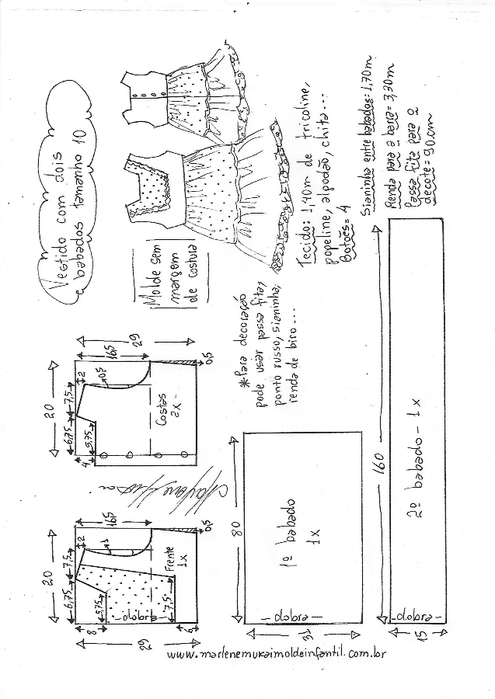 Vestido com dois
e babados tamanho 10
Molde sem
margem
de costura
Tecido: 1,40m de tricoline,
popeline, algodão, chita...
Botões = 4
Sianinha entre babados = 1,70m
Renda para a barra = 3,30m
Passa fita para o
decote = 90cm
*Para decoração
pode usar passa fita,
ponto russo, sianinha,
renda de biro...
20
6,75
7,5
2
0,5
16,5
29
9,75
4
Costas
2x
0,5
20
6,75
7,5
2
16,5
8
9,75
Frente
1x
dobra
7,5
5
29
0,5
80
1º babado
1x
dobra
31
160
2º babado - 1x
dobra
15
www.marlenemukaimoldeinfantil.com.br